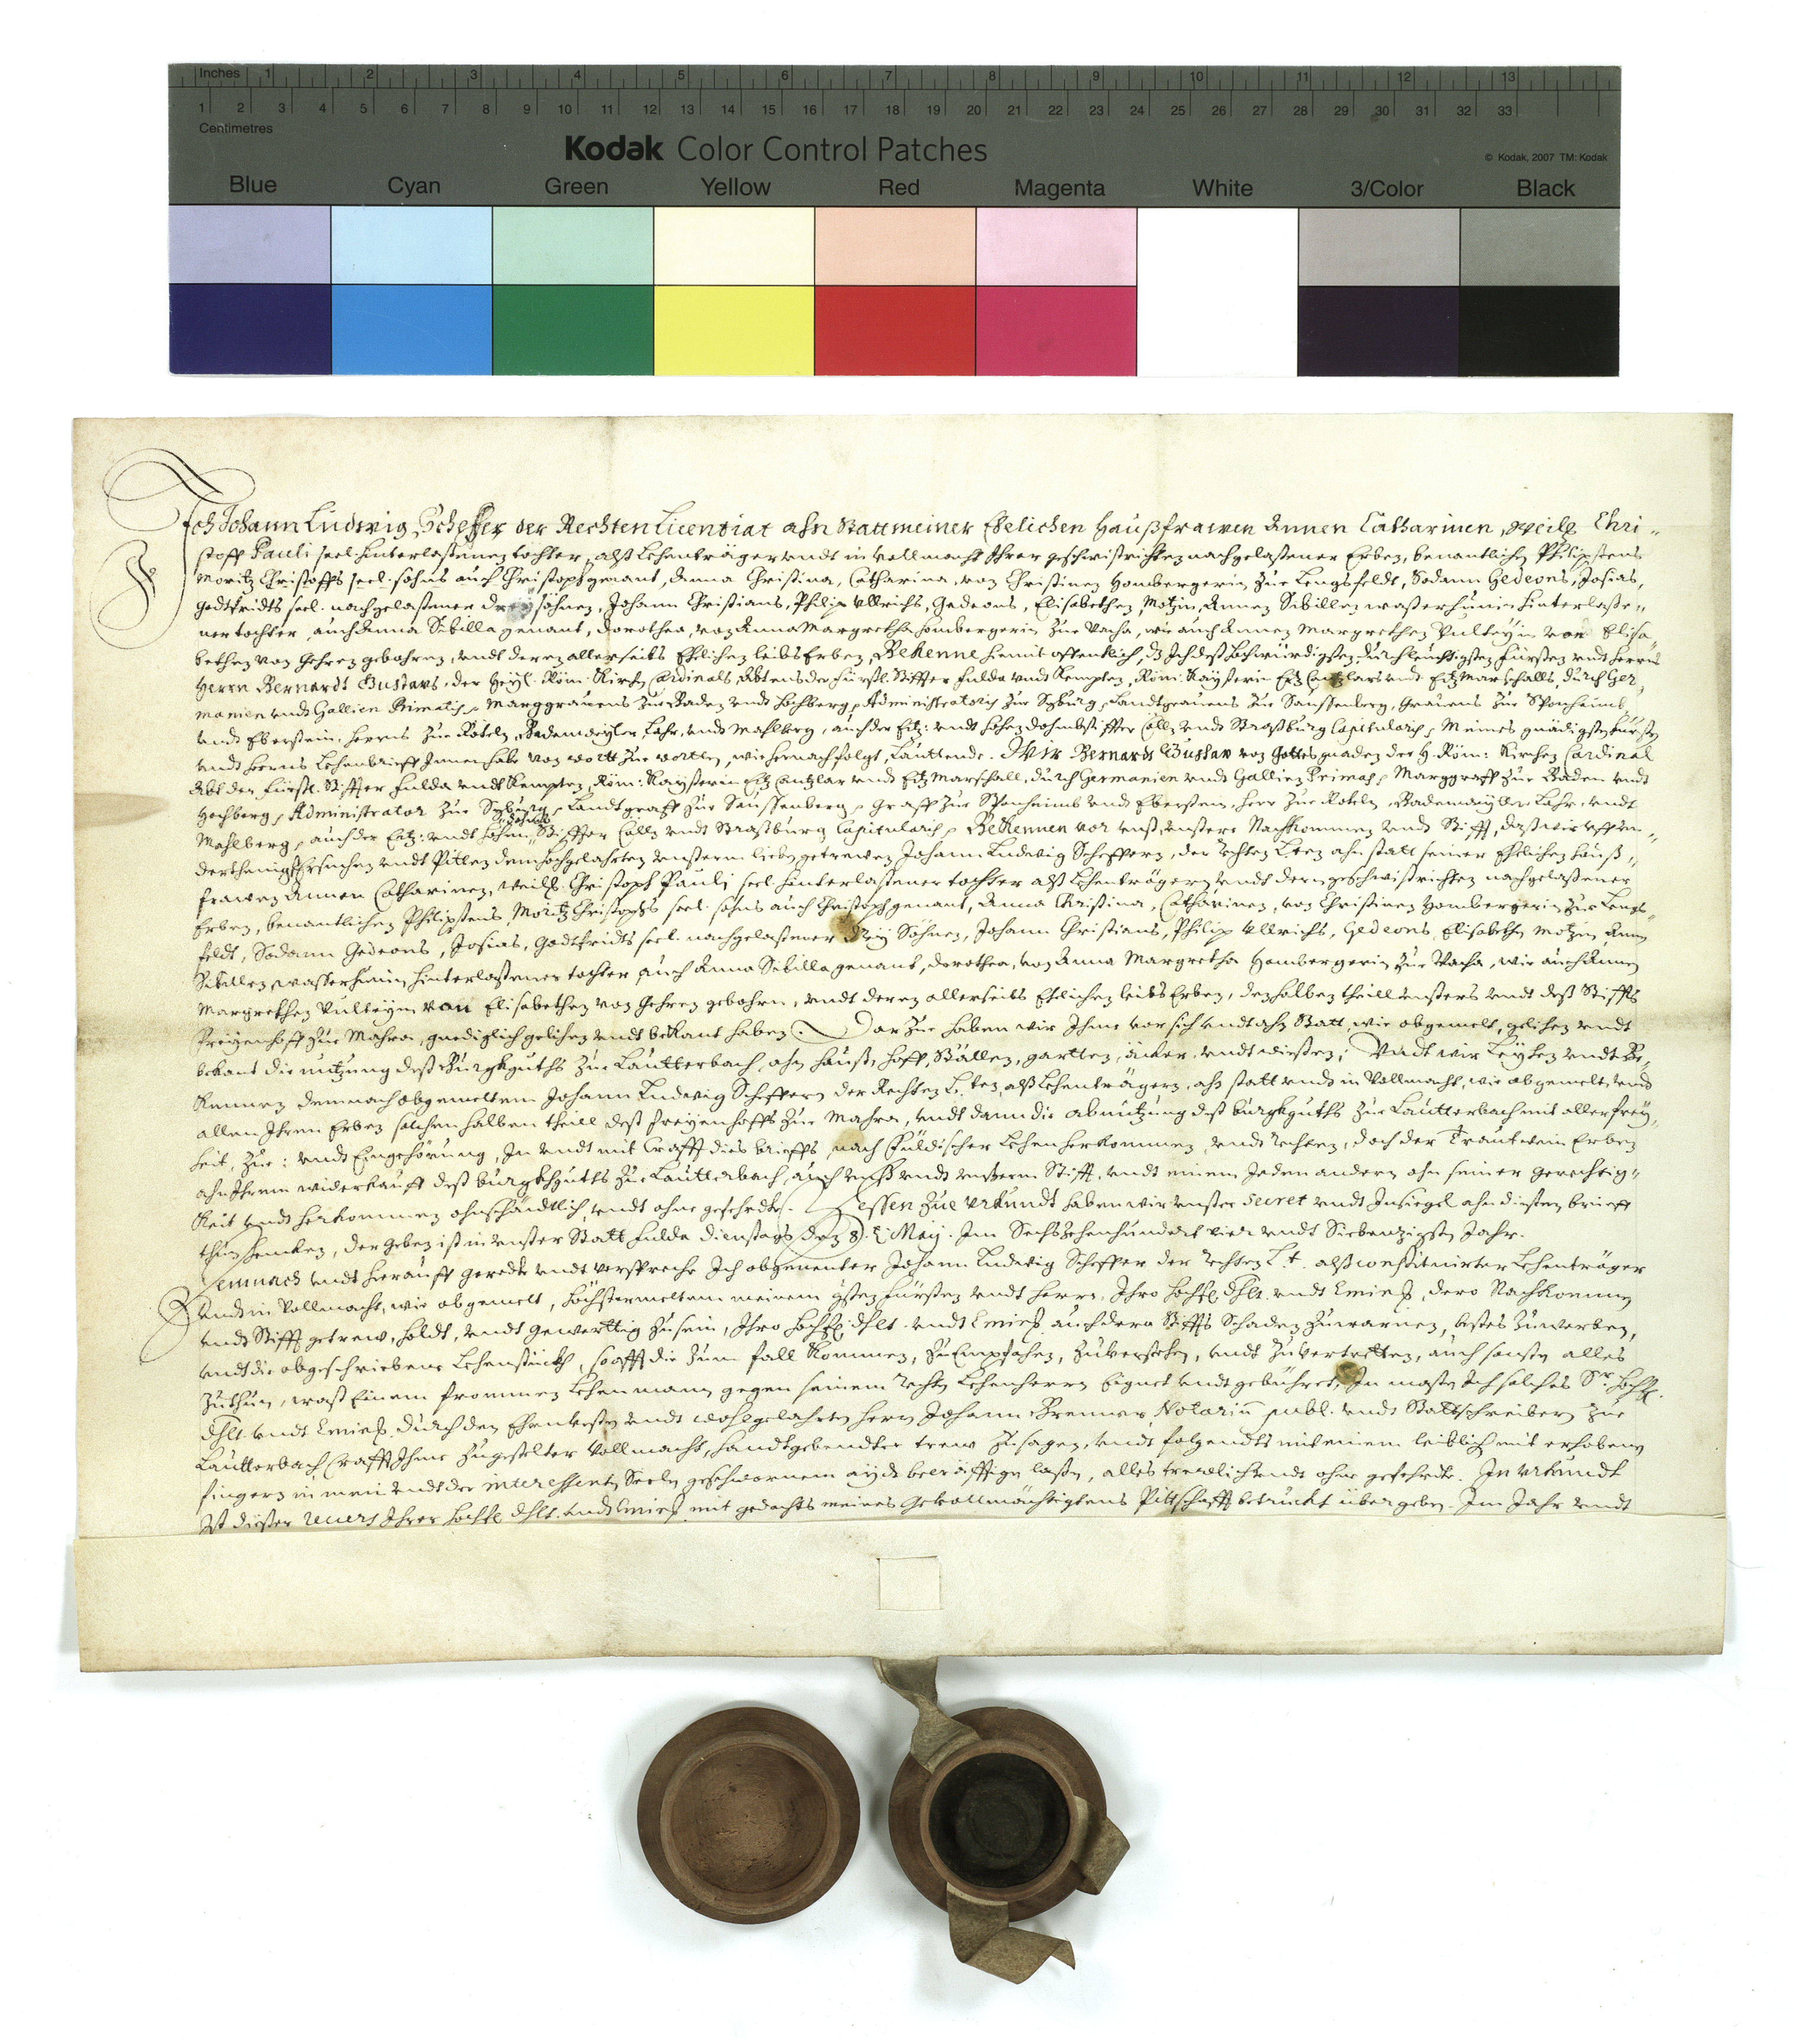 Inches 1 2 3 4 5 6 7 8 9 10 11 12 13
1 2 3 4 5 6 7 8 9 10 11 12 13 14 15 16 17 18 19 20 21 22 23 24 25 26 27 28 29 30 31 32 33
Centimetres
Kodak Color Control Patches
© Kodak, 2007 TM: Kodak
Blue Cyan Green Yellow Red Magenta White 3/Color Black
Ich Johann Ludwig Scheffer der Rechten Licentiat ahn Statt meiner Ehelichen Haußfrawen Annen Catharinen, weilℓ Chri-
stoff Pauli seel. hinterlaßenen tochter, alß Lehenträger undt in vollmacht Ihrer geschwistrichten nachgelaßener Erben, benantlichen Philipßens
Moritz Christoffs seel. sohns auch Christoph genant, Anna Christina, Catharina, von Christinen Hombergerin zue Lengsfeldt, Sodann Gedeons, Josias,
Godtfridts seel. nachgelaßener drey söhnen, Johann Christians, Philip Ullrichs, Gedeons, Elisabethen Motzin, Annen Sibillen hinterlaße-
ner tochter, auch Anna Sibilla genant, Dorothea, von Anna Margretha Hombergerin zue Vacha, wie auch Annen Margrethen Vulteyin von Elisa-
bethen von Gehren gebohren, undt deren allerseits Ehelichen leibs Erben, Bekenne hiemit offentlich, dz Ich deß Hochwürdigsten durchleuchtigsten Fürsten undt Herrn
Herrn Bernardt Gustavs, der heyl. Röm. Kirchen Cardinals, Abtens der fürstl. Stiffter Fulda undt Kempten, Röm. Kayßerin Ertz Cantzlars undt Ertz Marschalls, durch Ger-
manien undt Gallien Primatis, Marggravens zue Baden undt Hochberg, Administratoris zue Sigburg, Landtgravens zue Saußenberg, Gravens zue Sponheimb
undt Eberstein, Herrns zue Röteln, Badenweyler, Lahr, undt Mahlberg, auch der Ertz: undt hohen dohmbstiffter Cölln undt Straßburg Capitularis, Meines gnädigsten Fürsten
undt Herrns Lehenbrieff Innen habe von wortt zue wortten, wie hernach folgt, lauttende. Wir Bernardt Gustav von Gottes gnaden der H. Röm: Kirchen Cardinal
Abt der Fürstl. Stiffter Fulda undt Kempten, Röm: Kayßerin Ertz Cantzlar undt Ertz Marschall, durch Germanien undt Gallien Primas, Marggraff zue Baden undt
Hochberg, Administrator zue Sigburg, Landtgraff zue Saußenberg, Graff zue Sponheimb undt Eberstein, Herr zue Roteln, Badenweyler, Lahr, undt
Mahlberg, auch der Ertz: undt hohen Stiffter Cölln undt Straßburg Capitularis, Bekennen vor unß, unßere Nachkommen undt Stifft, daß wir uff un-
derthenigst Ersuchen undt Pitten dem hochgelahrten unßerm lieben getrewen Johann Ludwig Scheffern, der Rechten L.ten ahn statt seiner Ehelichen hauß-
frawen Annen Catharinen, weilℓ. Christoph Pauli seel. hinterlaßener tochter alß Lehenträgern, undt dern geschwistrichten nachgelaßener
Erben, benantlichen Philipßens, Moritz Christophs seel. sohns auch Christoph genant, Anna Christina, Catharinen, von Christinen Hombergerin zue Lengs-
feldt, Sodann Gedeons, Josias, Godtfridts seel. nachgelaßener drey Söhnen, Johann Christians, Philip Ullrichs, Gedeons, Elisabethen Motzin, Annen
Sibillen hinterlaßenen tochter auch Anna Sibilla genant, Dorothea, von Anna Margretha Hombergerin zue Vacha, wie auch Annen
Margrethen Vulteyin von Elisabethen von Gehren gebohrn, undt deren allerseits Ehelichen leibs Erben, den halben theill unßers undt deß Stiffts
Freyenhoff zue Mahra, gnediglich gelihen undt bekant haben. Darzue haben wir Ihme vor sich undt ahn Statt, wie obgemelt, gelihen undt
bekant die nutzung deß Burgkguths zue Lautterbach, ahn hauß, hoff, Ställen, gartten, äcker, undt wießen; Undt wir Leyhen undt Be-
kennen demnach obgemeltem Johann Ludwig Scheffern der Rechten L.ten, alß Lehenträgern, ahn statt undt in vollmacht, wie obgemelt, undt
allen Ihren Erben solchen halben theill deß Freyenhoffs zue Mahra, undt dann die abnutzung deß Burgkguths zue Lautterbach mit aller frey-
heit, Zue: undt Eingehörung, In undt mit Crafft dies brieffs, nach Fuldischer Lehen herkommen undt rechten, doch der Trautwein Erben
ahn Ihrem widerkauff deß burgkhguths zue Lautterbach, auch unß undt unßerm Stifft, undt einem Jeden andern ahn seiner gerechtig-
keit undt herkommen ohnschädtlich, undt ohne gefehrdte. Dessen zue urkundt haben wir unßer Secret undt Insiegel ahn dießen brieff
thun hencken, der geben ist in unßer Statt Fulda dienstags den 8. Maij. Im Sechszehenhundert vier undt Siebenzigsten Jahr.
Demnach undt hierauff gerede undt verspreche Ich obgenenter Johann Ludwig Scheffer der Rechten L.t. alß constituirter Lehenträger
undt in vollmacht, wie obgemelt, höchstermeltem meinem gsten Fürsten undt Herrn, Ihro hochfℓ. dhlt. undt Eminℓ. dero Nachkommen
undt Stifft getrew, holdt, undt gewerttig zusein, Ihro hochfℓ. dhlt. undt Eminℓ. auch dero Stiffts Schaden zuwarnen, bestes zuwerben,
undt die obgeschriebene Lehenstückh, so offt die zum fall kommen, zu Empfahen, zuversehen, undt zuvertretten, auch sonsten alles
zuthun, waß Einem frommen Lehenmann gegen seinem rechten Lehenherrn Eignet undt gebühret, In maßen Ich solches Sr. hochfℓ.
dhlt. undt Eminℓ. durch den Ehrnvesten undt wohlgelahrten Herrn Johann Brenner, Notariū publ. undt Stattschreibern zue
Lautterbach, Crafft Ihme zugestelter Vollmacht, handtgebender trew zusagen, undt folgendts mit einem leiblich mit erhobenen
fingern in mein undt der interessenten Seelen geschwornem aydt becräfftigen laßen, alles trewlich undt ohne gefehrde. In urkundt
Ist dießer revers Ihrer hochfℓ. dhlt. undt Eminℓ. mit gedachts meines Gevollmächtigtens Pittschafft betruckt übergeben. Im Jahr undt